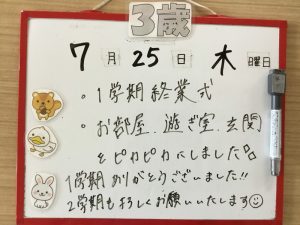 3歳
7月25日木曜日
・1学期終業式
・お部屋、遊ぎ室、玄関
をピカピカにしました
1学期ありがとうございました!!
2学期もよろしくお願いいたします